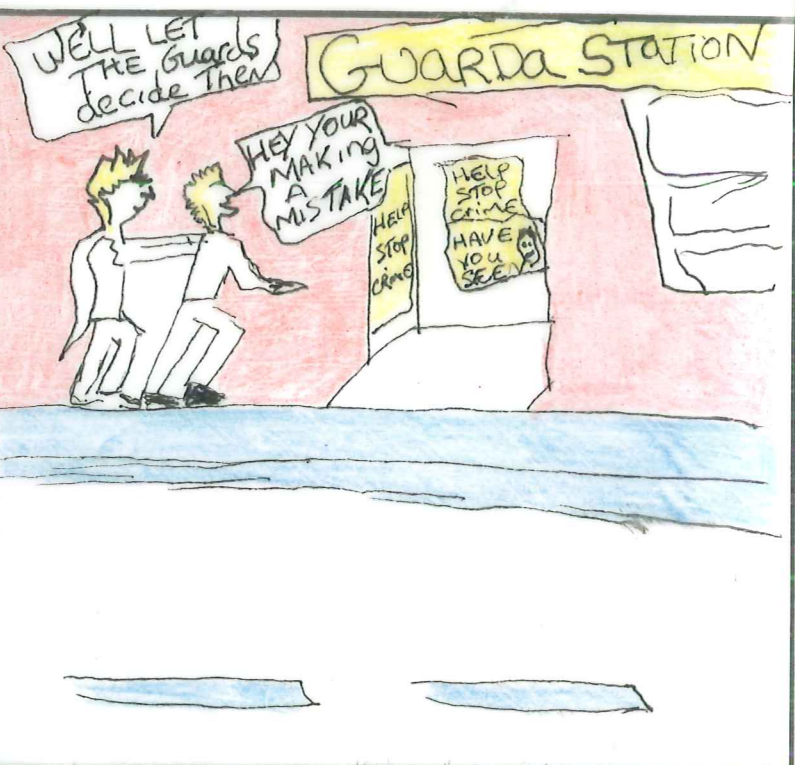 WE'LL LET
THE Guards
decide Then
GUARDa STaTION
HEY YOUR
MAKing
A
MISTAKE
HELP
STOP
CriME
HELP
STOP
CriME
HAVE
YOU
SEEN